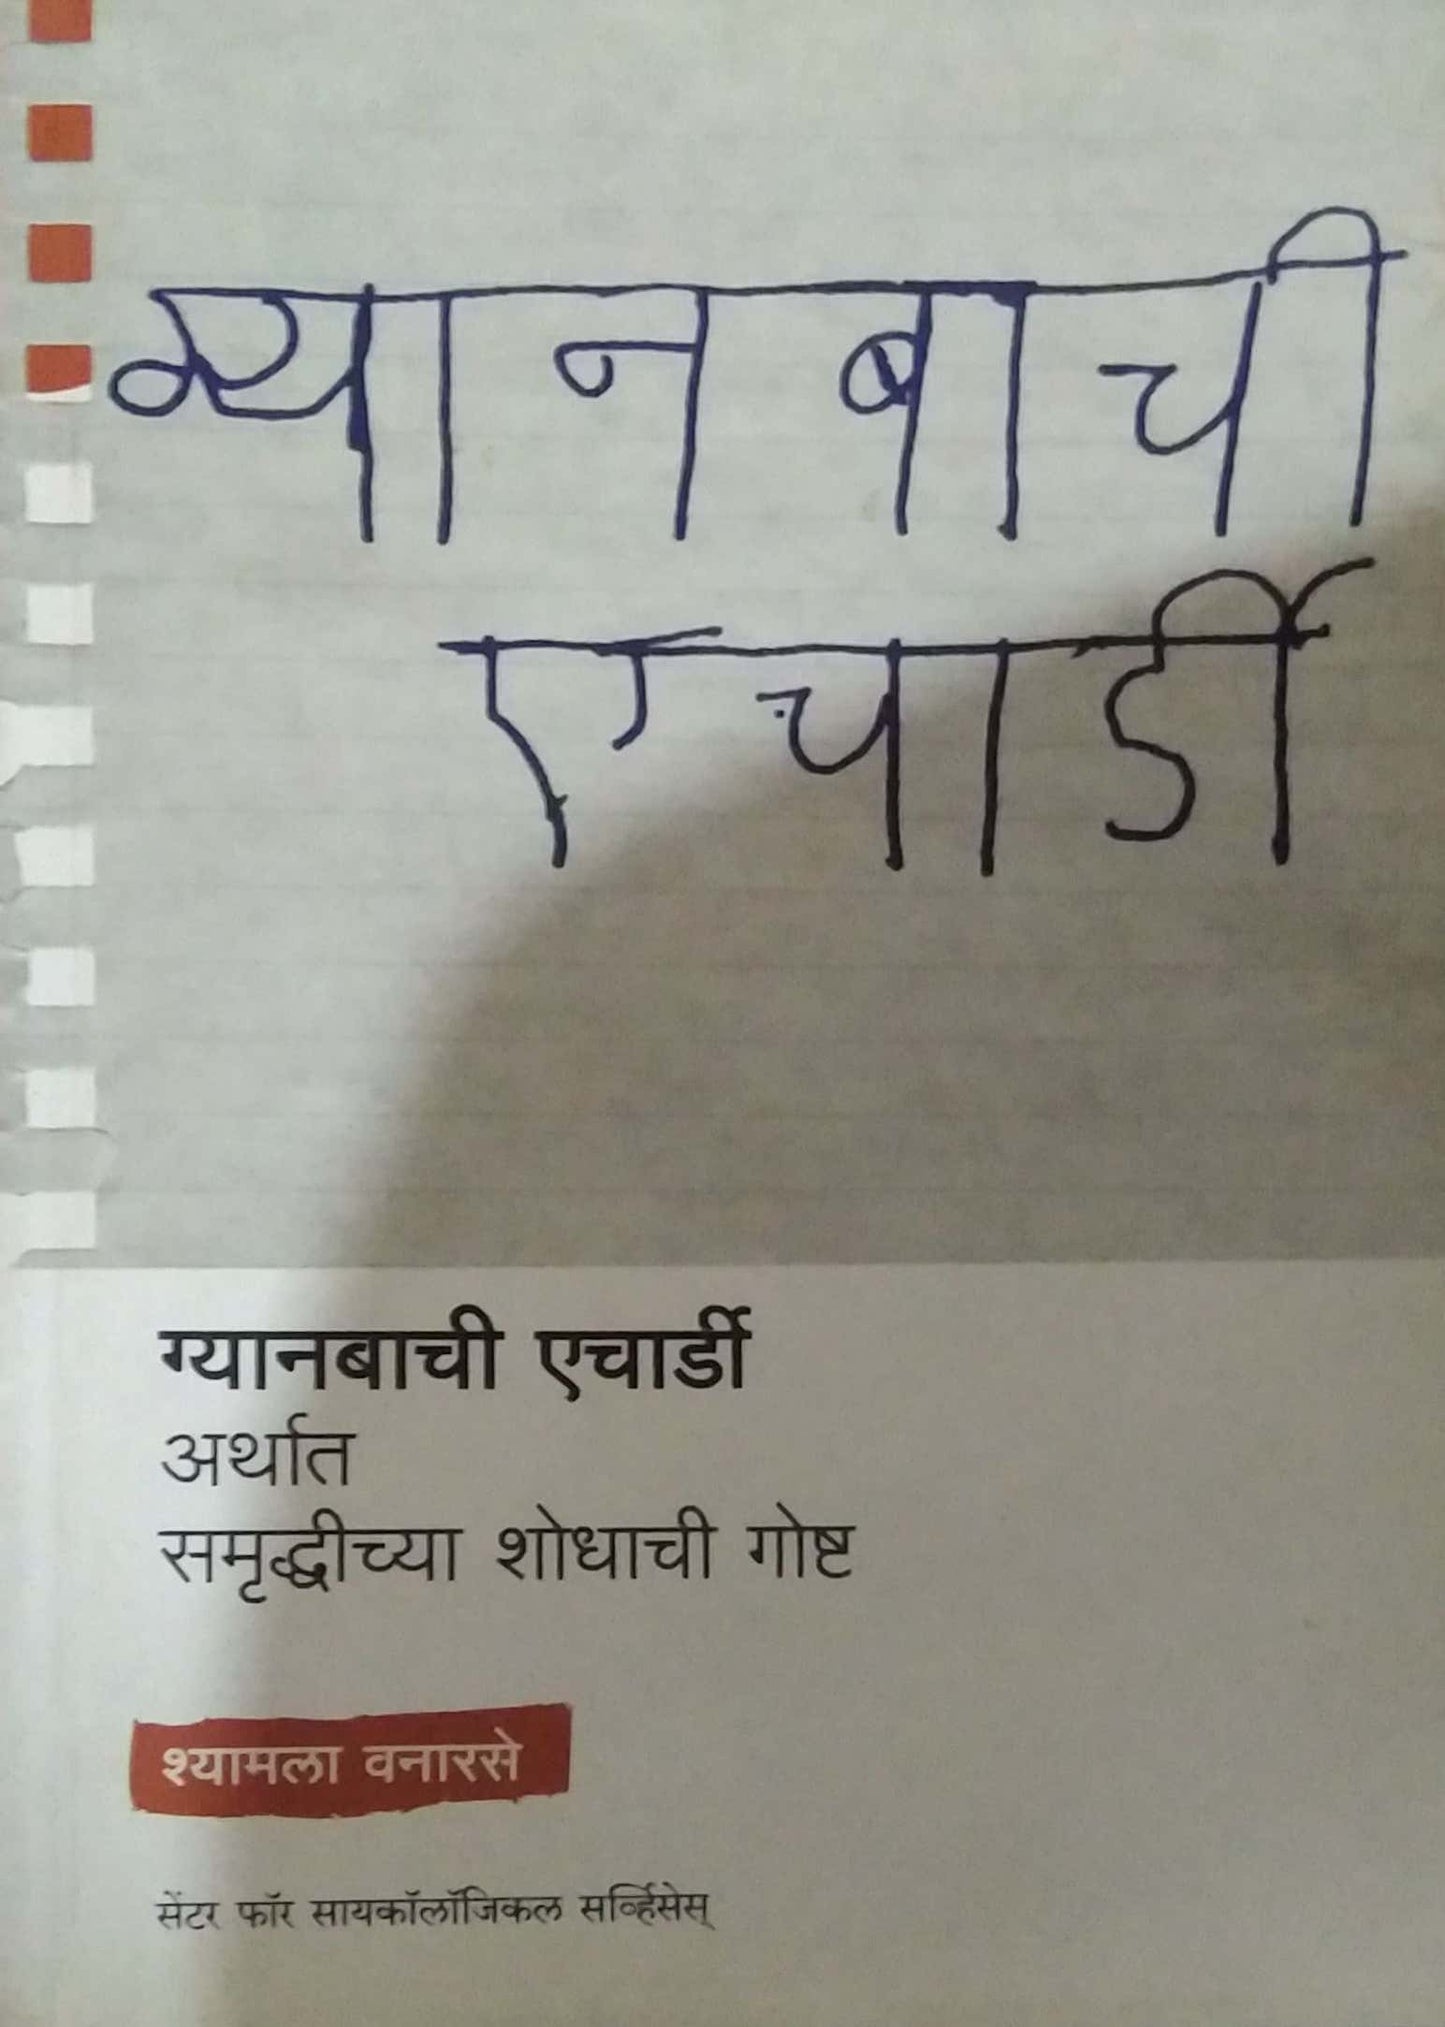 ग्यानबाची
एचार्डी
ग्यानबाची एचार्डी
अर्थात
समृद्धीच्या शोधाची गोष्ट
श्यामला वनारसे
सेंटर फॉर सायकॉलॉजिकल सर्व्हिसेस्